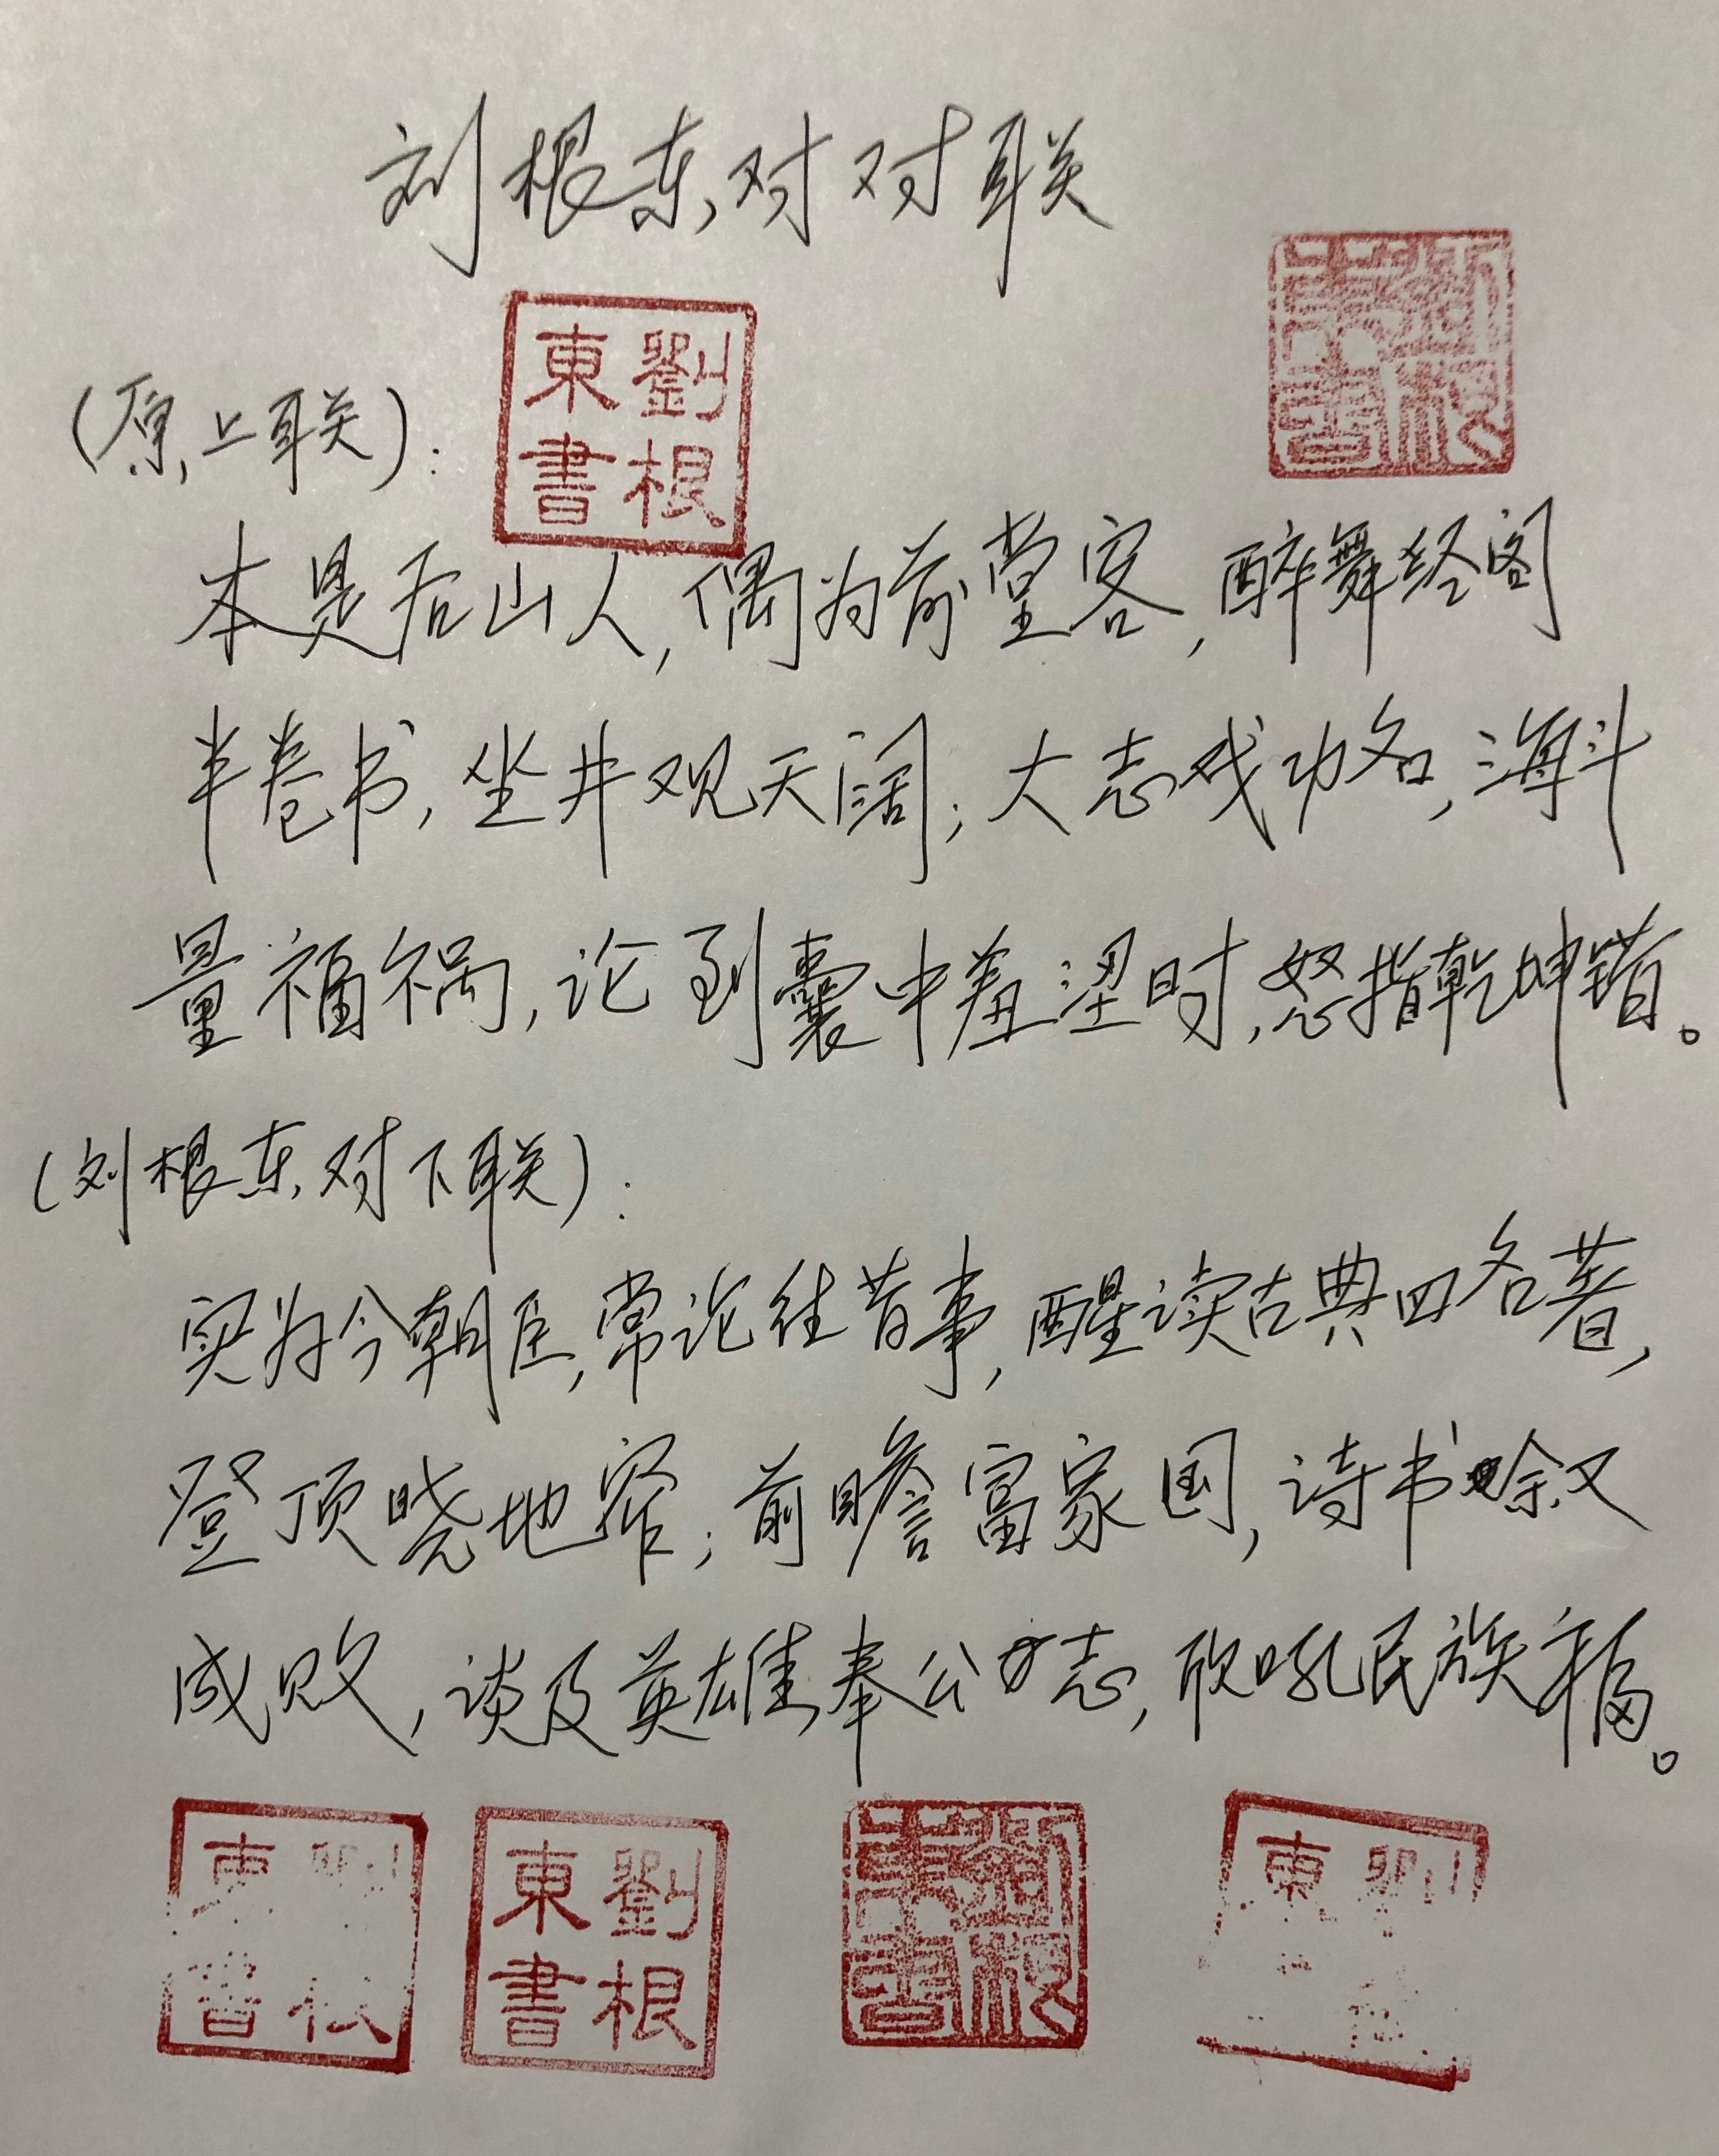 刘根东对对联
劉根東書
(原上联):
本是后山人,偶为前堂客,醉舞经阁
半卷书,坐井观天阔;大志戏功名,海斗
量福祸,论到囊中羞涩时,怒指乾坤错。
(刘根东对下联):
实为今朝臣,常论往昔事,醒读古典四名著,
登顶晓地窄;前瞻富家国,诗书晗叙
成败,谈及英雄奉公志,欣吼民族福。
劉根東書
劉根東書
劉根東書
劉東